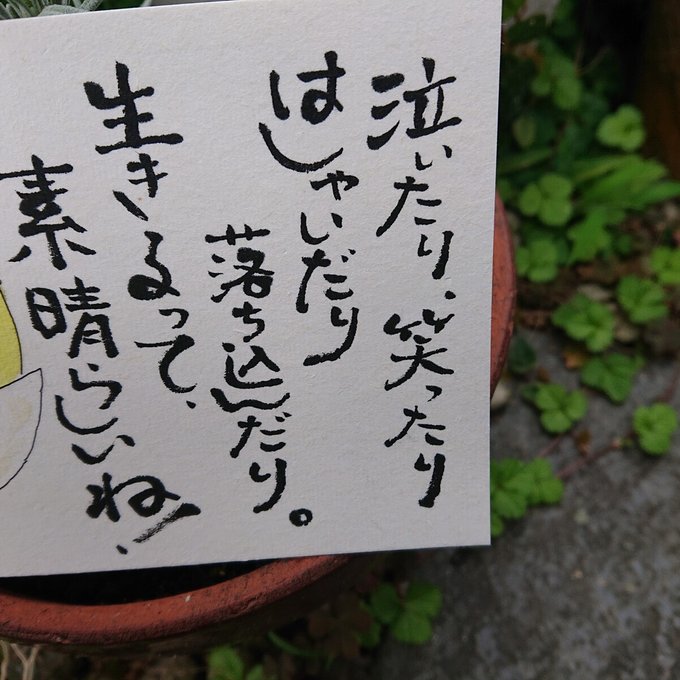 泣いたり、笑ったり
はしゃいだり
落ち込んだり。
生きるって、
素晴らしいね!